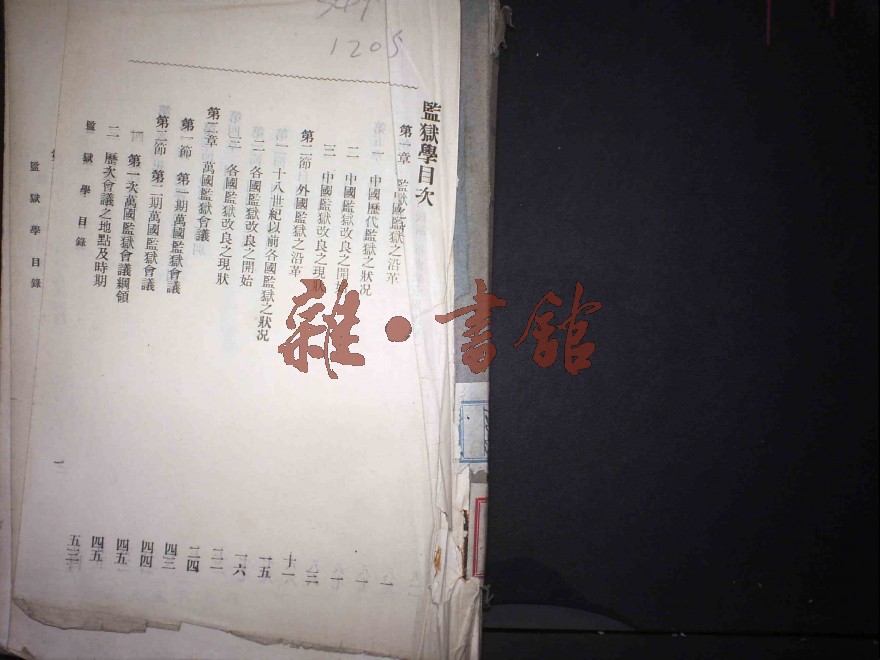 1205
監獄學目次
第一章
監獄之沿革
一 中國歷代監獄之狀況
二 中國監獄改良之開始
三 中國監獄改良之現狀
第二節 外國監獄之沿革
一 十八世紀以前各國監獄之狀况
二 各國監獄改良之開始
三 各國監獄改良之現狀
第二章 萬國監獄會議
第一節 第一期萬國監獄會議
第二節 第二期萬國監獄會議
一 第一次萬國監獄會議綱領
二 歷次會議之地點及時期
監獄學 目錄
監獄學 目錄
一
一五
一六
二四
四三
四四
四五
四五
五三
雜•書館